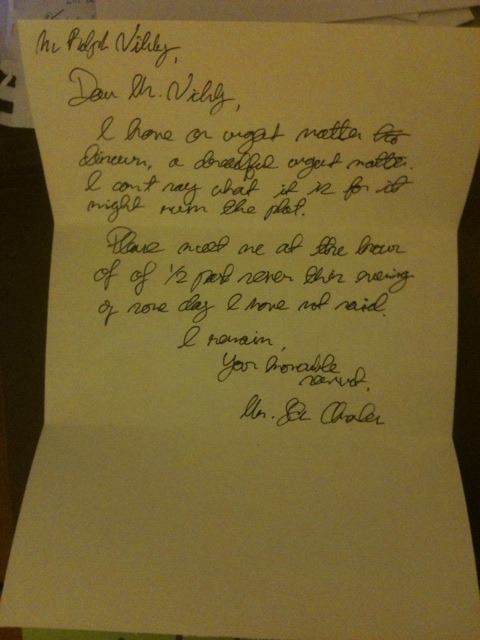 Mr Ralph Vihly,
Dear Mr. Vihly,
I have an urgent matter to
discuss, a dreadful urgent matter.
I can't say what it is for it
might ruin the plot.
Please meet me at the hour
of of 1/2 past seven this evening
of some day I have not said.
I remain,
Your honorable
servant,
Mr.